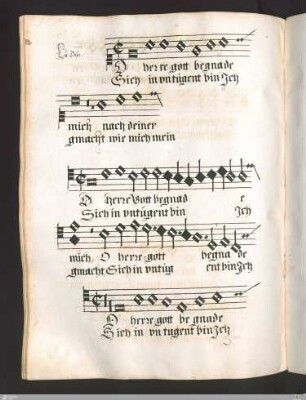 O herre gott begnade
Sich in vntugent bin Ich
mich nach deiner
gmacht wie mich mein
O herre Gott begnad e
Sich in vntigent bin Ich
mich O herre gott begna de
gmacht Sich in vntüg ent bin Ich
O herre gott be gnade
Sich in vn tugent bin Ich